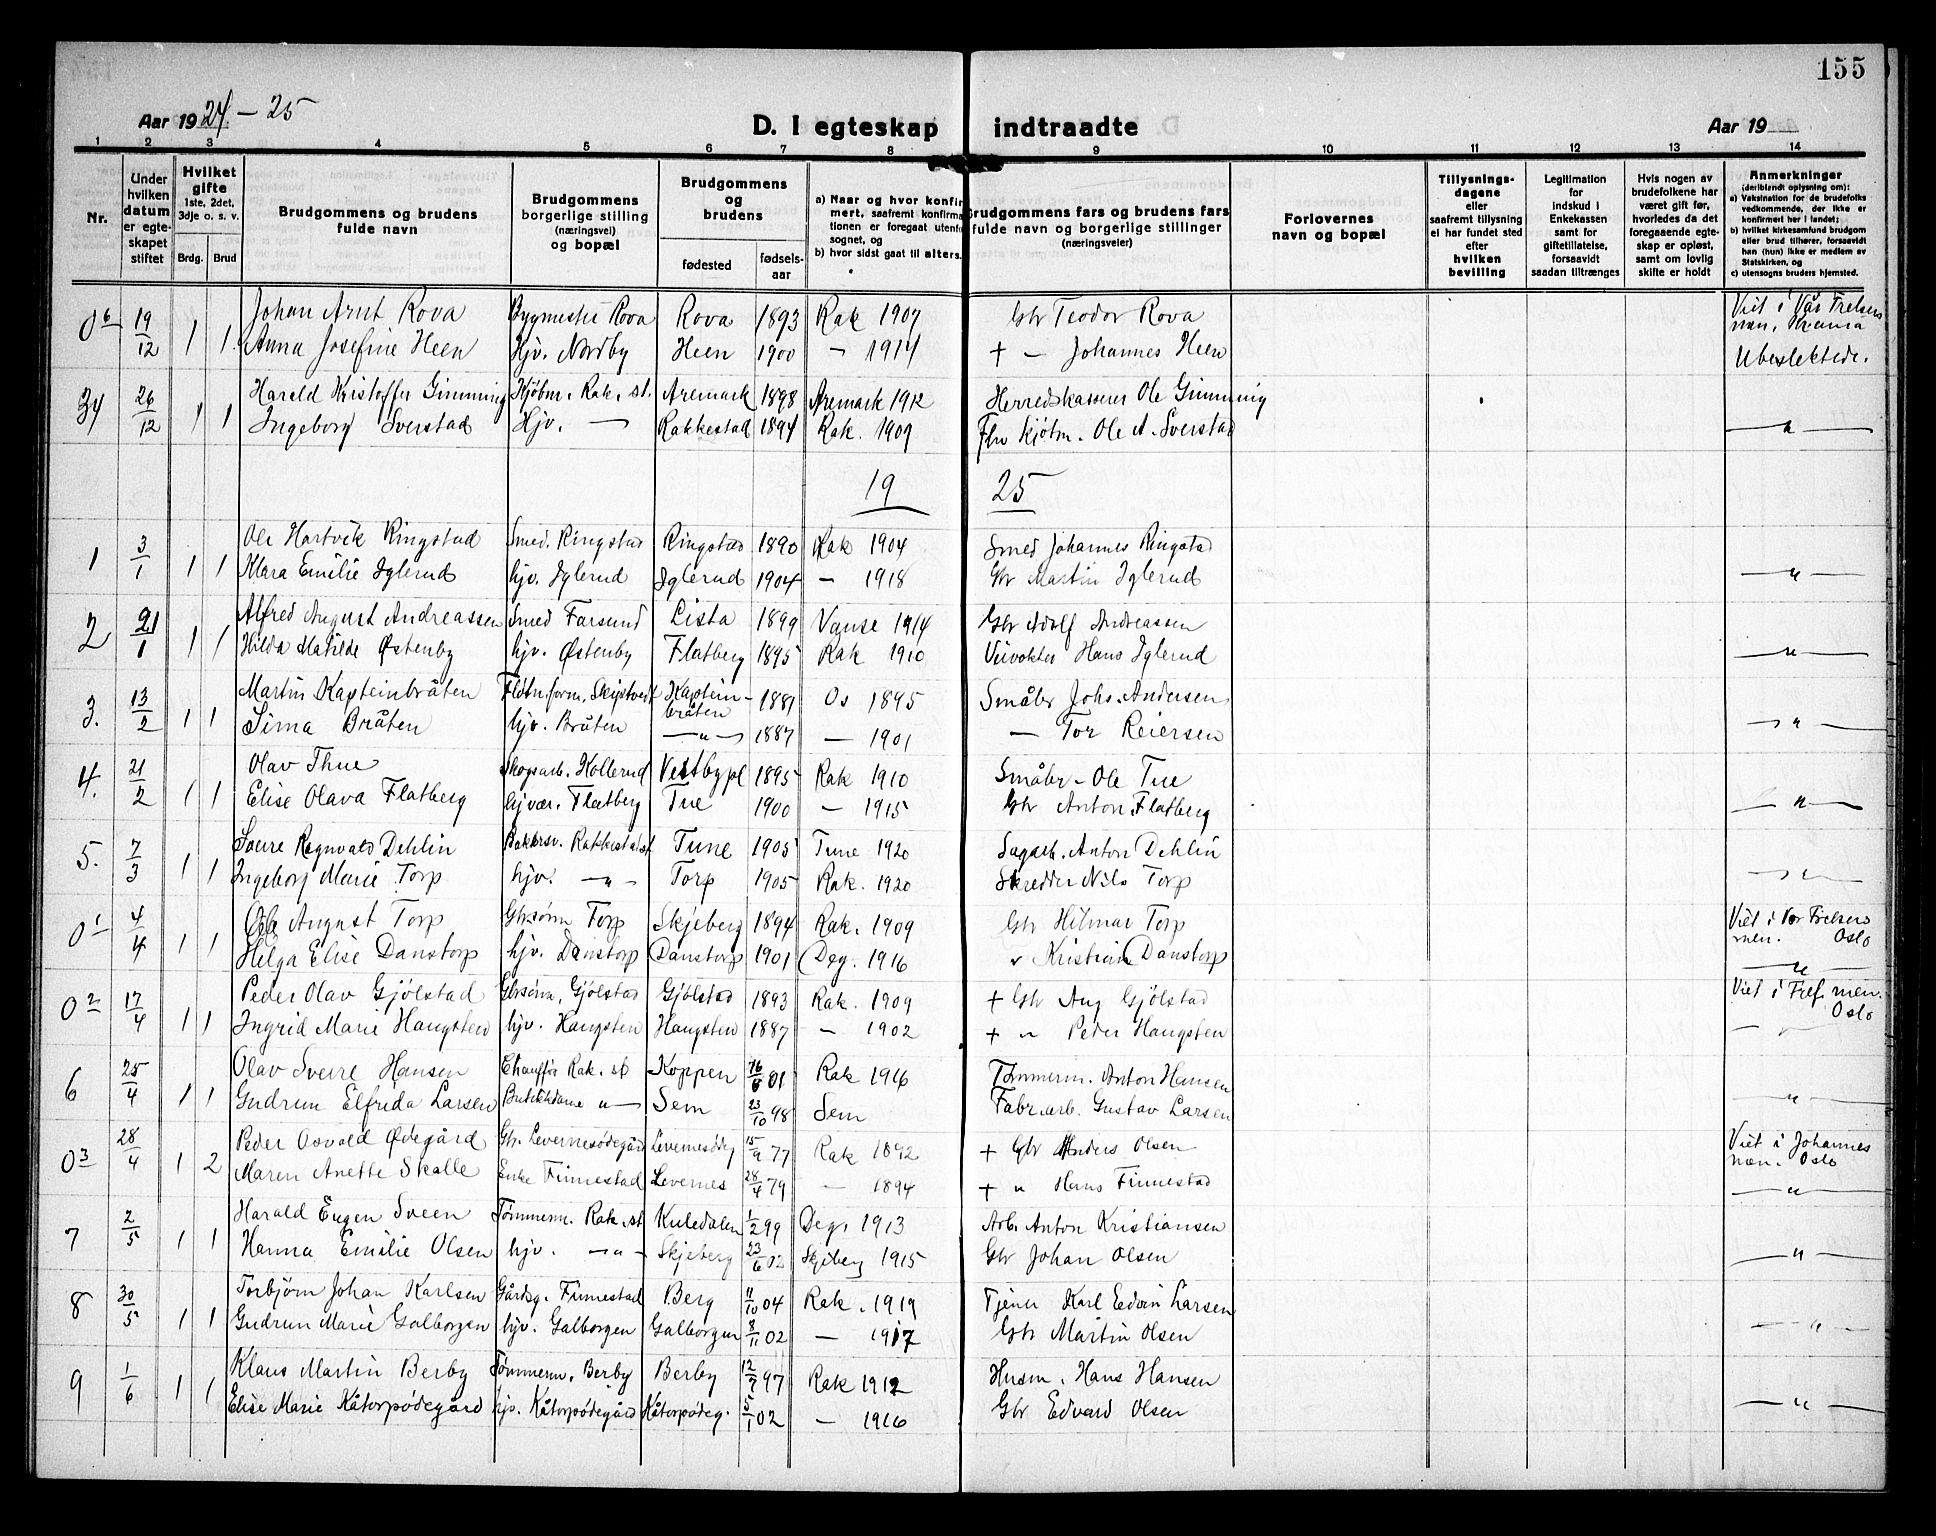 155
Aar 1924 – 25
D. I egteskap indtraadte
Aar 19
1 2 3 4 5 6 7 8 9 10 11 12 13 14
Nr.
Under hvilken datum er egteskapet stiftet
Hvilket gifte 1ste, 2det, 3dje o. s. v.
Brdg. Brud
Brudgommens og brudens fulde navn
Brudgommens borgerlige stilling (næringsvei) og bopæl
Brudgommens og brudens
fødested fødselsaar
a) Naar og hvor konfirmert, saafremt konfirmationen er foregaat utenfor sognet, og
b) hvor sidst gaat til alters.
Brudgommens fars og brudens fars fulde navn og borgerlige stillinger (næringsveier)
Forlovernes navn og bopæl
Tillysningsdagene eller saafremt tillysning ei har fundet sted efter hvilken bevilling
Legitimation for indskud i Enkekassen samt for giftetillatelse, forsaavidt saadan tiltrænges
Hvis nogen av brudefolkene har været gift før, hvorledes da det foregaaende egteskap er opløst, samt om lovlig skifte er holdt
Anmerkninger (deriblandt oplysning om):
a) Vaksination for de brudefolks vedkommende, der ikke er konfirmert her i landet;
b) hvilket kirkesamfund brudgom eller brud tilhører, forsaavidt han (hun) ikke er medlem av Statskirken, og
c) utensogns bruders hjemsted.
06 19/12 1 Johan Arnt Rova Bygmester Rova Rova 1893 Rak 1907 Gbr Teodor Rova Viet i Vår Frelsers men. Kr.ania
1 Anna Josefine Heen Hjv. Nordby Heen 1900 – 1914 + – Johannes Heen Ubeslektede.
34 26/12 1 Harald Kristoffer Gimming Kjøbm. Rak. st. Aremark 1898 Aremark 1912 Herredskasserer Ole Gimming
1 Ingeborg Sverstad Hjv. — Rakkestad 1894 Rak. 1909 Fhv kjøbm. Ole A. Sverstad – " –
19 25
1 3/1 1 Ole Hartvik Ringstad Smed. Ringstad Ringstad 1890 Rak 1904 Smed Johannes Ringstad
1 Klara Emilie Iglerud hjv. Iglerud Iglerud 1904 – 1918 Gbr Martin Iglerud – " –
2 21/1 1 Alfred August Andreassen Smed Farsund Lista 1899 Vanse 1914 Gbr Adolf Andreassen
1 Hilda Matilde Østenby hjv. Østenby Flatberg 1895 Rak 1910 Veivokter Hans Iglerud – " –
3. 13/2 1 Martin Kapteinbråten Fløtn.form. Skiptvedt Kapteinbråten 1881 Os 1895 Småbr Johs. Andersen
1 Sima Bråten hjv. Bråten – " – 1887 – 1901 – Tor Reiersen – " –
4. 21/2 1 Olav Thue Skogsarb. Kollerud Vestbypl 1895 Rak 1910 Småbr – Ole Tue
1 Elise Olava Flatberg hjvær. Flatberg Tue 1900 – 1915 Gbr Anton Flatberg – " –
5. 7/3 1 Sverre Ragnvald Dehlin Bakersv. Rakkestad st Tune 1905 Tune 1920 Sagarb. Anton Dehlin
1 Ingeborg Marie Torp hjv. – " – Torp 1905 Rak. 1920 Skredder Nils Torp – " –
01 4/4 1 Ole August Torp Gbrsønn Torp Skjeberg 1894 Rak. 1909 Gbr Hilmar Torp Viet i Vor Frelsers men. Oslo
1 Helga Elise Danstorp hjv. Danstorp Danstorp 1901 Deg. 1916 " Kristian Danstorp – " –
02 17/4 1 Peder Olav Gjølstad Gbrsønn, Gjølstad Gjølstad 1893 Rak. 1909 + Gbr Aug Gjølstad Viet i Frels. men. Oslo
1 Ingrid Marie Haugsten hjv. Haugsten Haugsten 1887 – 1902 + " Peder Haugsten – " –
6 25/4 1 Olav Sverre Hansen Chauffør Rak. st Koppen 16/6 01 Rak 1916 Tømmerm. Anton Hansen
1 Gudrun Elfrida Larsen Butikkdame " – Sem 23/10 98 Sem Fabr.arb. Gustav Larsen – " –
03 28/4 1 Peder Osvald Ødegård Gbr. Levernesødegård Levernesødeg 15/9 77 Rak 1892 + Gbr Anders Olsen Viet i Johannes men. Oslo
2 Maren Anette Skalle Enke Finnestad Levernes 28/4 79 – 1894 + " Hans Finnestad – " –
7 2/5 1 Harald Eugen Sveen Tømmerm. Rak. st Kuledalen 1/2 99 Deg. 1913 Arb. Anton Kristiansen
1 Hanna Emilie Olsen hjv. – " – Skjeberg 23/6 02 Skjeberg 1915 Gbr Johan Olsen – " –
8 30/5 1 Torbjørn Johan Karlsen Gårdsg. Finnestad Berg 11/10 04 Rak. 1919 Tjener Karl Edvin Larsen
1 Gudrun Marie Galborgen hjv. Galborgen Galborgen 8/11 02 – 1917 Gbr Martin Olsen – " –
9 1/6 1 Klaus Martin Berby Tømmerm. Berby Berby 12/7 97 Rak 1912 Husm. Hans Hansen
1 Elise Marie Kåtorpødegård hjv. Kåtorpødegård Kåtorpødeg. 5/1 02 – 1916 Gbr Edvard Olsen – " –